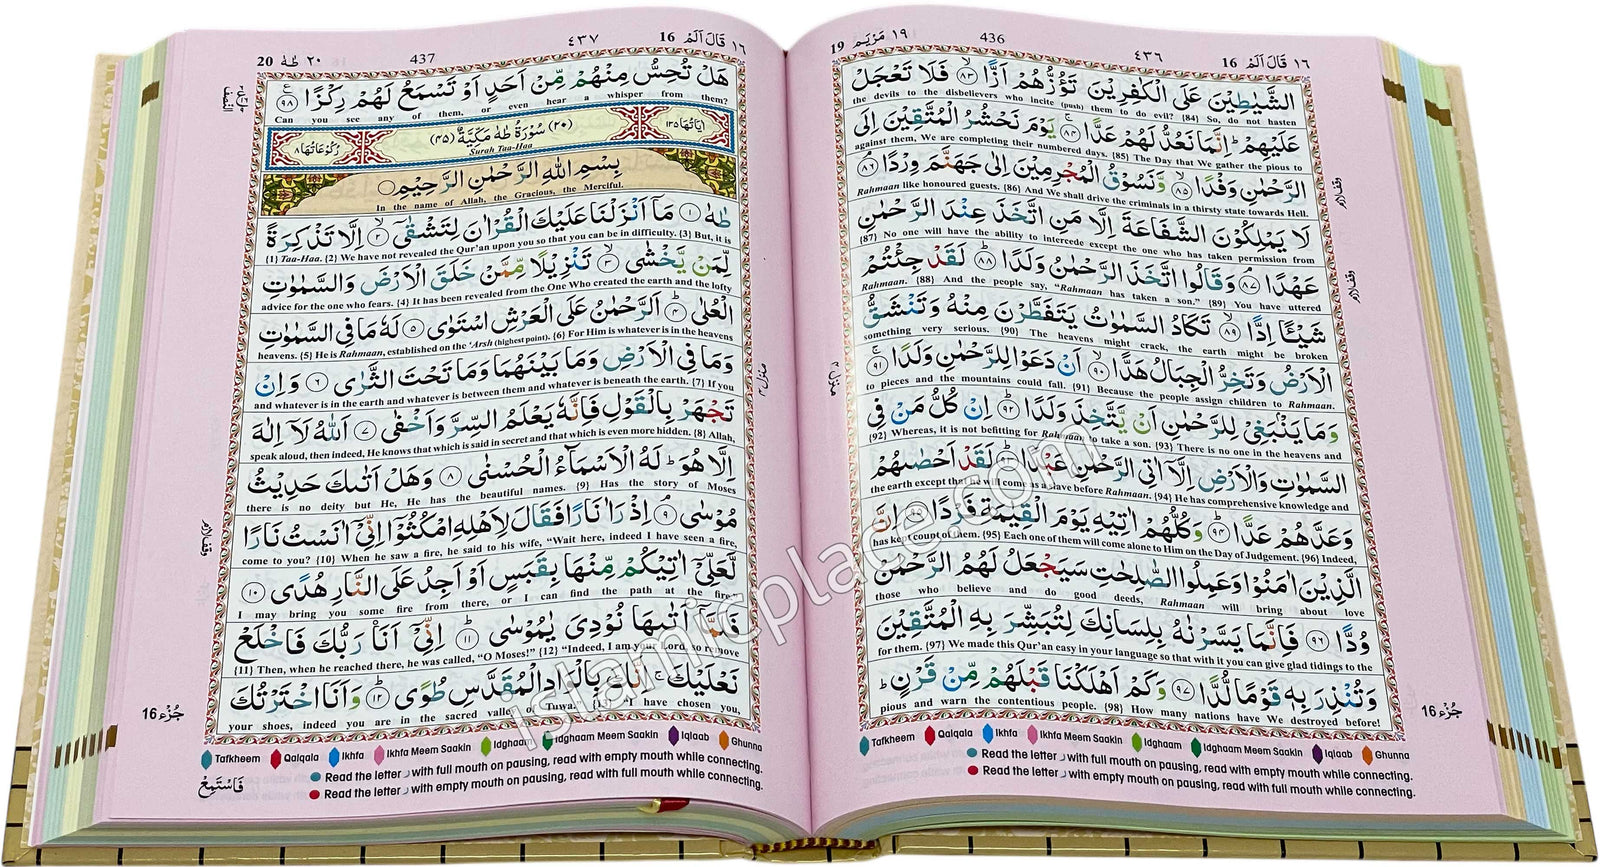 ١٩ مَرْيَم 19
436
٤٣٦
١٦ قَالَ اَلَمْ 16
الشَّيٰطِيْنَ عَلَى الْكٰفِرِيْنَ تَؤُزُّهُمْ اَزًّا ﴿٨٣﴾ فَلَا تَعْجَلْ
the devils to the disbelievers who incite (push) them to do evil? {84} So, do not hasten
عَلَيْهِمْ ؕ اِنَّمَا نَعُدُّ لَهُمْ عَدًّا ﴿٨٤﴾ يَوْمَ نَحْشُرُ الْمُتَّقِيْنَ اِلَى
against them, We are completing their numbered days. {85} The Day that We gather the pious to
الرَّحْمٰنِ وَفْدًا ﴿٨٥﴾ وَّنَسُوْقُ الْمُجْرِمِيْنَ اِلٰى جَهَنَّمَ وِرْدًا ﴿٨٦﴾
Rahmaan like honoured guests. {86} And We shall drive the criminals in a thirsty state towards Hell.
لَا يَمْلِكُوْنَ الشَّفَاعَةَ اِلَّا مَنِ اتَّخَذَ عِنْدَ الرَّحْمٰنِ
{87} No one will have the ability to intercede except the one who has taken permission from
عَهْدًا ﴿٨٧﴾ وَقَالُوا اتَّخَذَ الرَّحْمٰنُ وَلَدًا ﴿٨٨﴾ لَقَدْ جِئْتُمْ
Rahmaan. {88} And the people say, “Rahmaan has taken a son.” {89} You have uttered
شَيْـًٔا اِدًّا ﴿٨٩﴾ تَكَادُ السَّمٰوٰتُ يَتَفَطَّرْنَ مِنْهُ وَتَنْشَقُّ
something very serious. {90} The heavens might crack, the earth might be broken
الْاَرْضُ وَتَخِرُّ الْجِبَالُ هَدًّا ﴿٩٠﴾ اَنْ دَعَوْا لِلرَّحْمٰنِ وَلَدًا ﴿٩١﴾
to pieces and the mountains could fall. {91} Because the people assign children to Rahmaan.
وَمَا يَنْۢبَغِيْ لِلرَّحْمٰنِ اَنْ يَّتَّخِذَ وَلَدًا ﴿٩٢﴾ اِنْ كُلُّ مَنْ فِي
{92} Whereas, it is not befitting for Rahmaan to take a son. {93} There is no one in the heavens and
السَّمٰوٰتِ وَالْاَرْضِ اِلَّاۤ اٰتِي الرَّحْمٰنِ عَبْدًا ﴿٩٣﴾ لَقَدْ اَحْصٰىهُمْ
the earth except that he will come as a slave before Rahmaan. {94} He has comprehensive knowledge and
وَعَدَّهُمْ عَدًّا ﴿٩٤﴾ وَكُلُّهُمْ اٰتِيْهِ يَوْمَ الْقِيٰمَةِ فَرْدًا ﴿٩٥﴾ اِنَّ
has kept count of them. {95} Each one of them will come alone to Him on the Day of Judgement. {96} Indeed,
الَّذِيْنَ اٰمَنُوْا وَعَمِلُوا الصّٰلِحٰتِ سَيَجْعَلُ لَهُمُ الرَّحْمٰنُ
those who believe and do good deeds, Rahmaan will bring about love
وُدًّا ﴿٩٦﴾ فَاِنَّمَا يَسَّرْنٰهُ بِلِسَانِكَ لِتُبَشِّرَ بِهِ الْمُتَّقِيْنَ
for them. {97} We made this Qur’an easy in your language so that with it you can give glad tidings to the
وَتُنْذِرَ بِهٖ قَوْمًا لُّدًّا ﴿٩٧﴾ وَكَمْ اَهْلَكْنَا قَبْلَهُمْ مِّنْ قَرْنٍ ؕ
pious and warn the contentious people. {98} How many nations have We destroyed before!
جُزْء 16
Tafkheem Qalqala Ikhfa Ikhfa Meem Saakin Idghaam Idghaam Meem Saakin Iqlaab Ghunna
Read the letter ر with full mouth on pausing, read with empty mouth while connecting.
Read the letter ر with empty mouth on pausing, read with full mouth while connecting.
٢٠ طٰهٰ 20
437
٤٣٧
١٦ قَالَ اَلَمْ 16
هَلْ تُحِسُّ مِنْهُمْ مِّنْ اَحَدٍ اَوْ تَسْمَعُ لَهُمْ رِكْزًا ﴿٩٨﴾
Can you see any of them, or even hear a whisper from them?
اٰيَاتُهَا ١٣٥ (٢٠) سُوْرَةُ طٰهٰ مَكِّيَّةٌ (٤٥) رُكُوْعَاتُهَا ٨
Surah Taa-Haa
بِسْمِ اللّٰهِ الرَّحْمٰنِ الرَّحِيْمِ
In the name of Allah, the Gracious, the Merciful.
طٰهٰ ﴿١﴾ مَاۤ اَنْزَلْنَا عَلَيْكَ الْقُرْاٰنَ لِتَشْقٰٓى ﴿٢﴾ اِلَّا تَذْكِرَةً
{1} Taa-Haa. {2} We have not revealed the Qur’an upon you so that you can be in difficulty. {3} But, it is
لِّمَنْ يَّخْشٰى ﴿٣﴾ تَنْزِيْلًا مِّمَّنْ خَلَقَ الْاَرْضَ وَالسَّمٰوٰتِ
advice for the one who fears. {4} It has been revealed from the One Who created the earth and the lofty
الْعُلٰى ﴿٤﴾ اَلرَّحْمٰنُ عَلَى الْعَرْشِ اسْتَوٰى ﴿٥﴾ لَهٗ مَا فِي السَّمٰوٰتِ
heavens. {5} He is Rahmaan, established on the ‘Arsh (highest point). {6} For Him is whatever is in the heavens
وَمَا فِي الْاَرْضِ وَمَا بَيْنَهُمَا وَمَا تَحْتَ الثَّرٰى ﴿٦﴾ وَاِنْ
and whatever is in the earth and whatever is between them and whatever is beneath the earth. {7} If you
تَجْهَرْ بِالْقَوْلِ فَاِنَّهٗ يَعْلَمُ السِّرَّ وَاَخْفٰى ﴿٧﴾ اَللّٰهُ لَاۤ اِلٰهَ
speak aloud, then indeed, He knows that which is said in secret and that which is even more hidden. {8} Allah,
اِلَّا هُوَ ؕ لَهُ الْاَسْمَآءُ الْحُسْنٰى ﴿٨﴾ وَهَلْ اَتٰىكَ حَدِيْثُ
there is no deity but He, He has the beautiful names. {9} Has the story of Moses
مُوْسٰى ﴿٩﴾ اِذْ رَاٰ نَارًا فَقَالَ لِاَهْلِهِ امْكُثُوْۤا اِنِّيْۤ اٰنَسْتُ نَارًا
come to you? {10} When he saw a fire, he said to his wife, “Wait here, indeed I have seen a fire,
لَّعَلِّيْۤ اٰتِيْكُمْ مِّنْهَا بِقَبَسٍ اَوْ اَجِدُ عَلَى النَّارِ هُدًى ﴿١٠﴾
I may bring you some fire from there, or I can find the path at the fire.
فَلَمَّاۤ اَتٰىهَا نُوْدِيَ يٰمُوْسٰى ﴿١١﴾ اِنِّيْۤ اَنَا رَبُّكَ فَاخْلَعْ
{11} Then, when he reached there, he was called, “O Moses!” {12} “Indeed, I am your Lord, so remove
نَعْلَيْكَ ۚ اِنَّكَ بِالْوَادِ الْمُقَدَّسِ طُوًى ﴿١٢﴾ وَاَنَا اخْتَرْتُكَ
your shoes, indeed you are in the sacred valley of Tuwa. {13} I have chosen you,
16 جُزْء
Tafkheem Qalqala Ikhfa Ikhfa Meem Saakin Idghaam Idghaam Meem Saakin Iqlaab Ghunna
Read the letter ر with full mouth on pausing, read with empty mouth while connecting.
Read the letter ر with empty mouth on pausing, read with full mouth while connecting.
فَاسْتَمِعْ
islamicplace.com